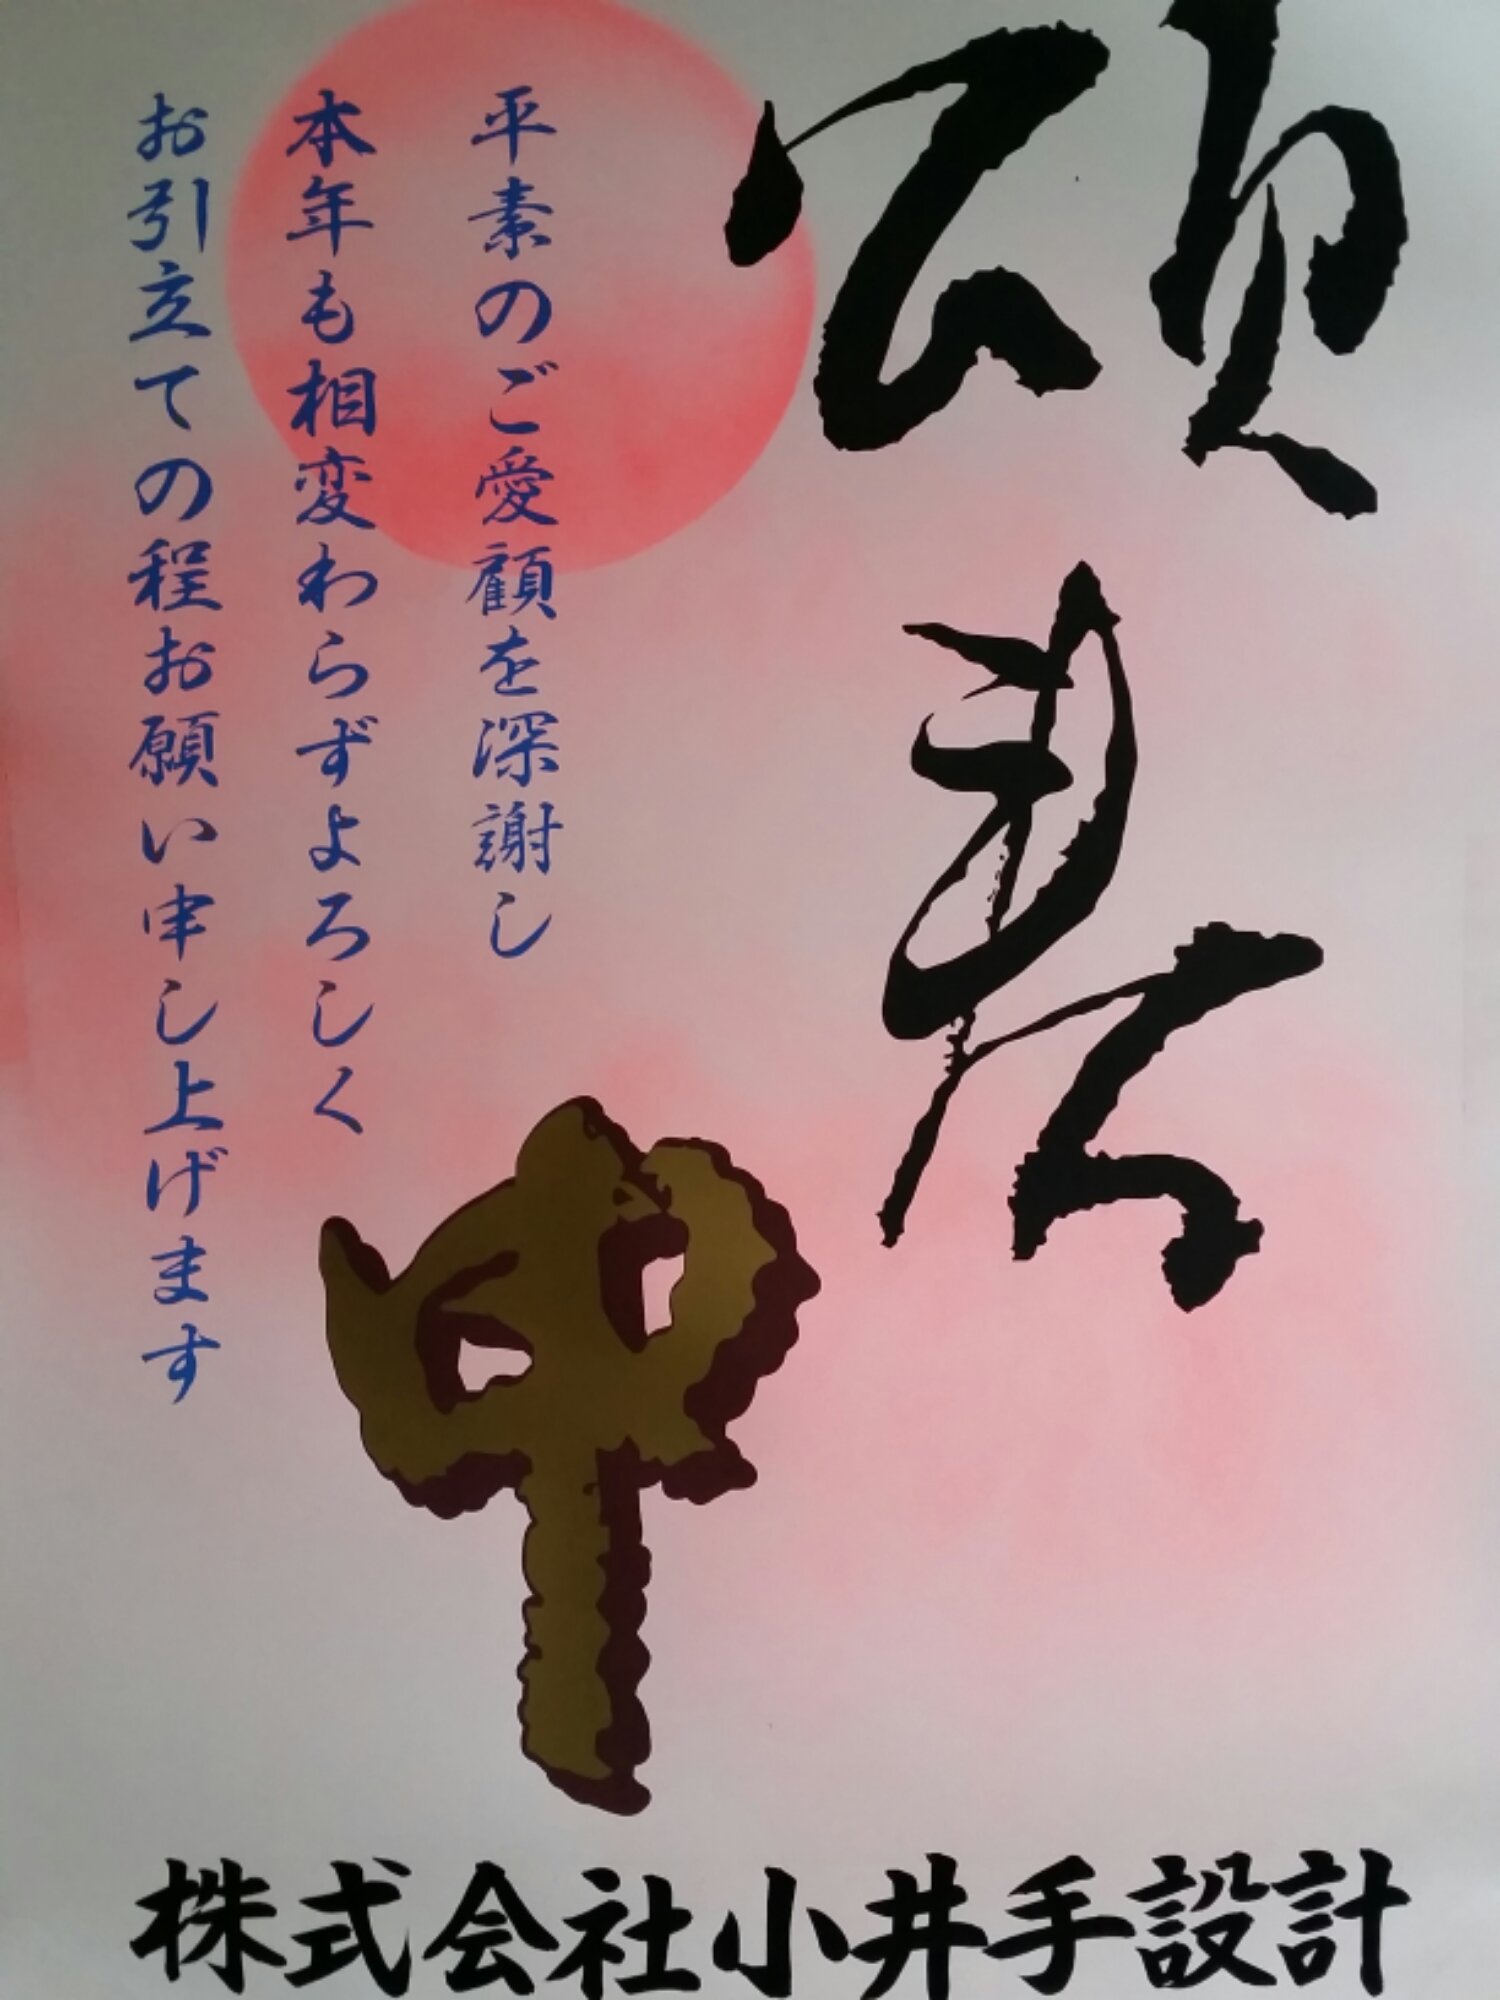 頌春
平素のご愛顧を深謝し
本年も相変わらずよろしく
お引立ての程お願い申し上げます
申
株式会社小井手設計